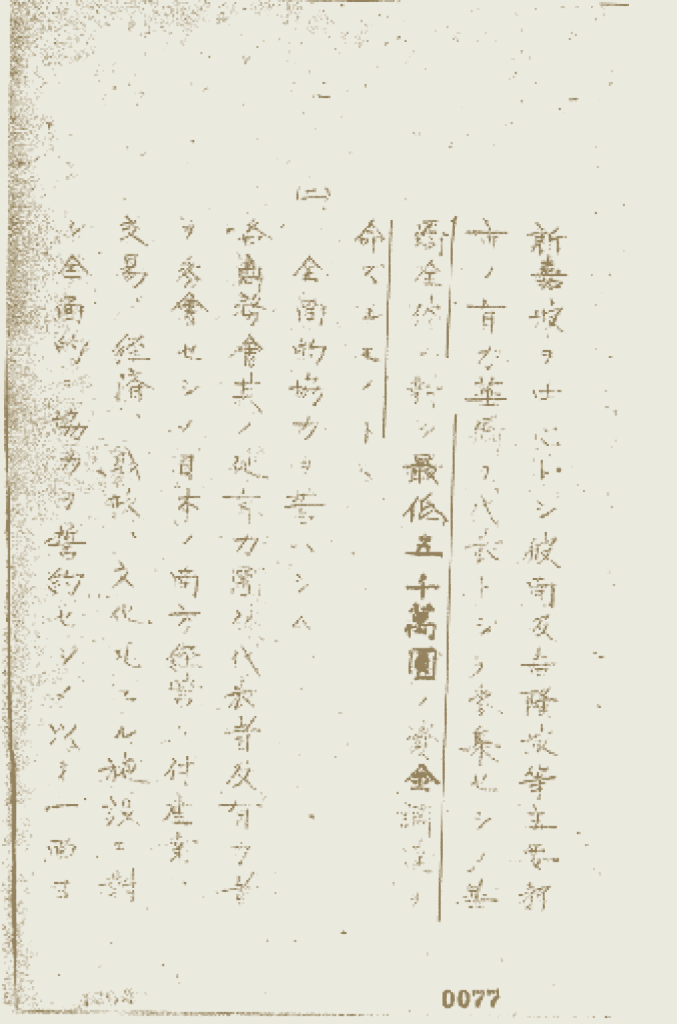 新嘉坡ヲ中心トシ彼南及吉隆坡等主要都
市ノ有力華僑ヲ代表トシテ参集セシメ華
僑全体ニ対シ最低五千萬圓ノ資金調達ヲ
命スルモノトス
(二) 全面的協力ヲ誓ハシム
各商務會其ノ他有力團体代表者及有力者
ヲ参會セシメ日本ノ南方経営ニ付産業、
交易、経済、文化凡ユル施設ニ對
シ全面的ニ協力ヲ誓約セシメ以テ一両日
0077